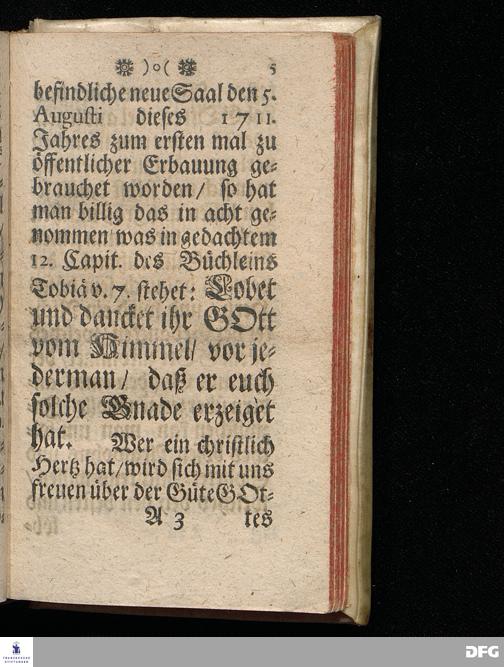 ❋ )o( ❋ 5
befindliche neue Saal den 5.
Augusti dieses 1711.
Jahres zum ersten mal zu
öffentlicher Erbauung ge-
brauchet worden/ so hat
man billig das in acht ge-
nommen was in gedachtem
12. Capit. des Büchleins
Tobiä v. 7. stehet: Lobet
und dancket ihr GOtt
vom Himmel/ vor je-
derman/ daß er euch
solche Gnade erzeiget
hat. Wer ein christlich
Hertz hat/wird sich mit uns
freuen über der Güte GOt-
A 3 tes
FRANCKESCHE STIFTUNGEN
DFG